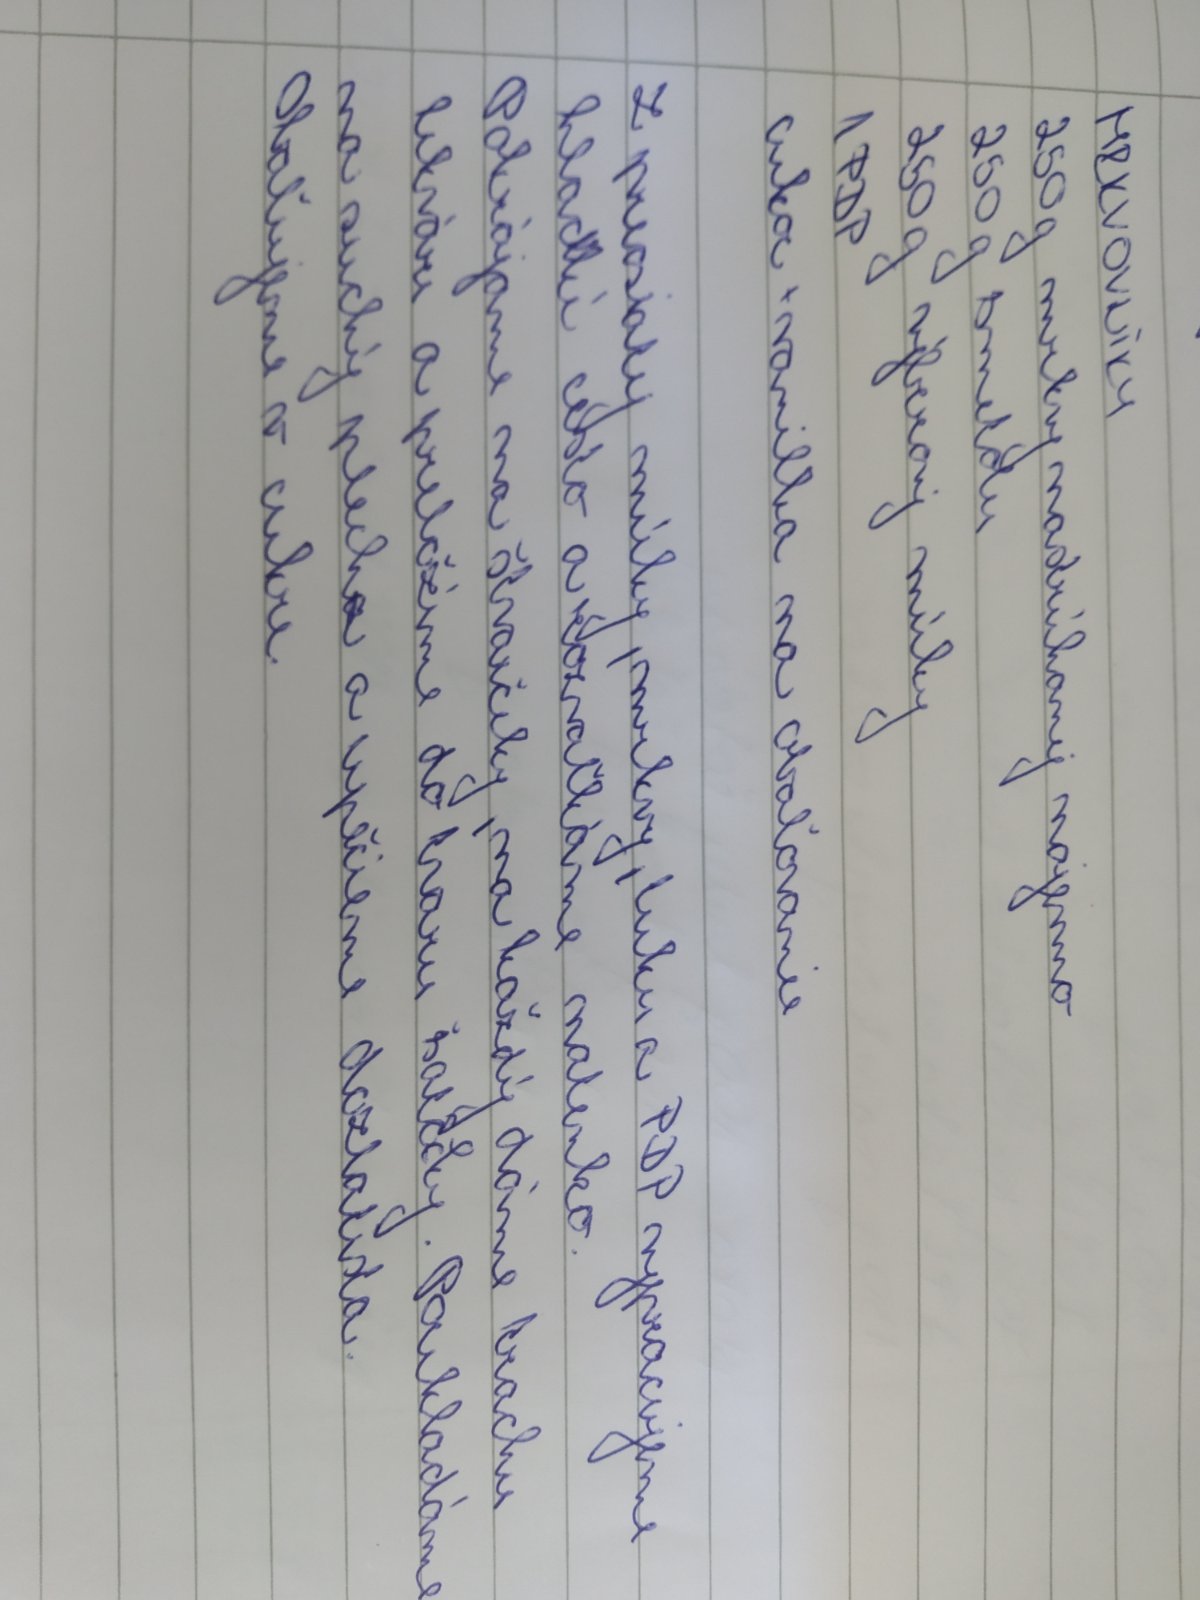 MRKVOVNÍKY
250g mrkvy nadrúhanej najemno
250g tmatdu
250g výberovej múky
1 PDP
cukor + vanilka na obaľovanie
Z preosiatej múky, mrkvy, tuku a PDP vypracujeme
hladké cesto a rozvaľkáme natenko.
Pokrájame na štvorčeky, na každý dáme trochu
lekváru a preložíme do tvaru šatôčky. Poukladáme
na suchý plech a upečieme dozlatista.
Obaľujeme v cukre.